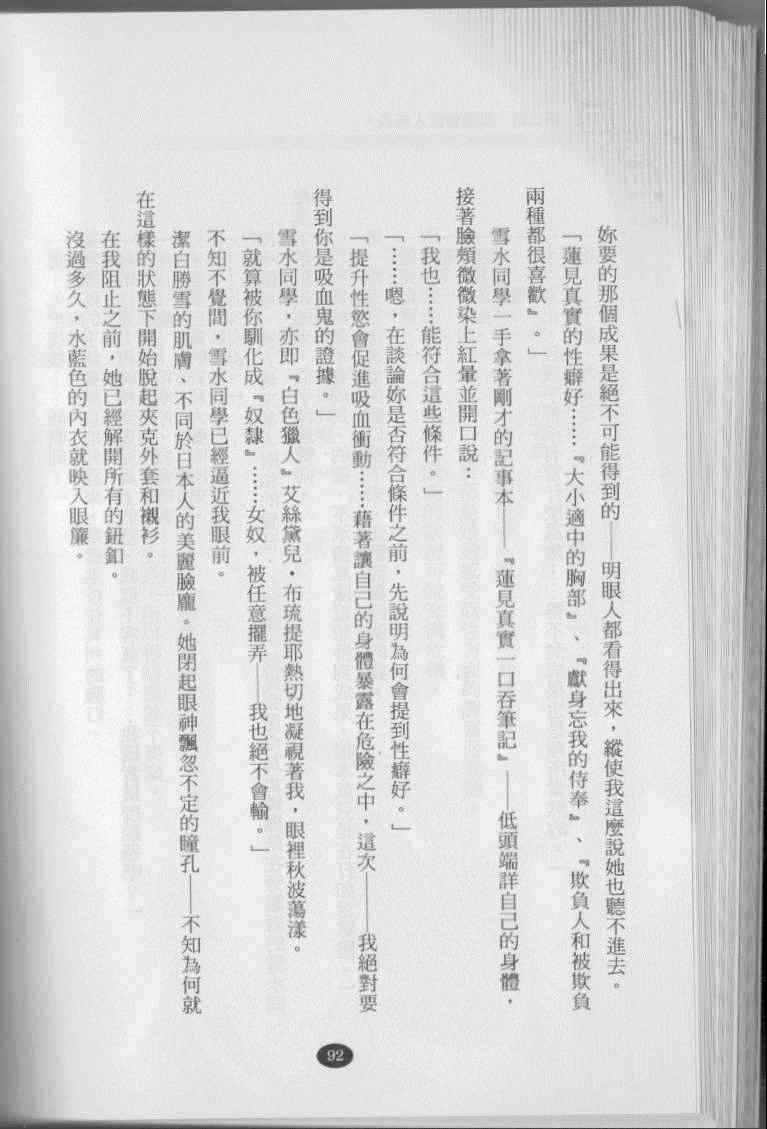 妳要的那個成果是絕不可能得到的——明眼人都看得出來，縱使我這麼說她也聽不進去。
「蓮見真實的性癖好……『大小適中的胸部』、『獻身忘我的侍奉』、『欺負人和被欺負
兩種都很喜歡』。」
雪水同學一手拿著剛才的記事本——『蓮見真實一口吞筆記』——低頭端詳自己的身體，
接著臉頰微微染上紅暈並開口說：
「我也……能符合這些條件。」
「……嗯，在談論妳是否符合條件之前，先說明為何會提到性癖好。」
「提升性慾會促進吸血衝動……藉著讓自己的身體暴露在危險之中，這次——我絕對要
得到你是吸血鬼的證據。」
雪水同學，亦即『白色獵人』艾絲黛兒・布琉提耶熱切地凝視著我，眼裡秋波蕩漾。
「就算被你馴化成『奴隸』……女奴，被任意擺弄——我也絕不會輸。」
不知不覺間，雪水同學已經逼近我眼前。
潔白勝雪的肌膚、不同於日本人的美麗臉龐。她閉起眼神飄忽不定的瞳孔——不知為何就
在這樣的狀態下開始脫起夾克外套和襯衫。
在我阻止之前，她已經解開所有的鈕釦。
沒過多久，水藍色的內衣就映入眼簾。
92